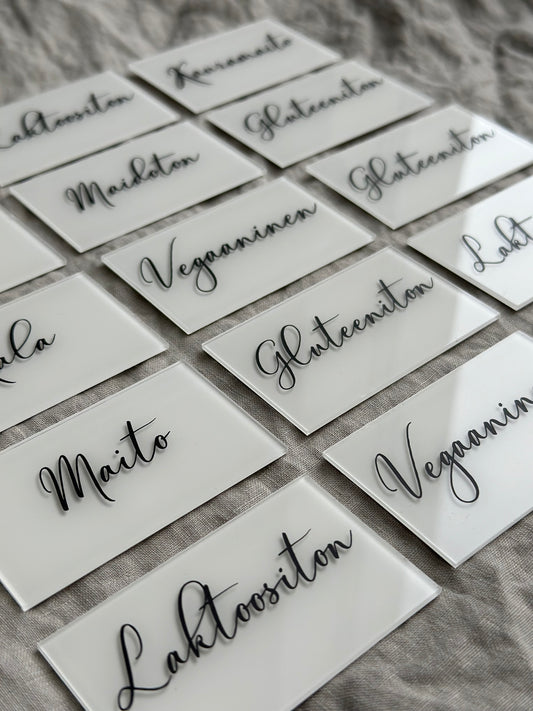 Kauramaito
Laktoositon
Gluteeniton
Maidoton
Gluteeniton
Vegaaninen
Lakt
Gluteeniton
ala
Maito
Vegaanin
Laktoositon